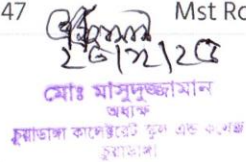 47 Mst Ro
২৬/১২/২৫
মোঃ মাসুদুজ্জামান
অধ্যক্ষ
চুয়াডাঙ্গা কালেক্টরেট স্কুল এন্ড কলেজ
চুয়াডাঙ্গা